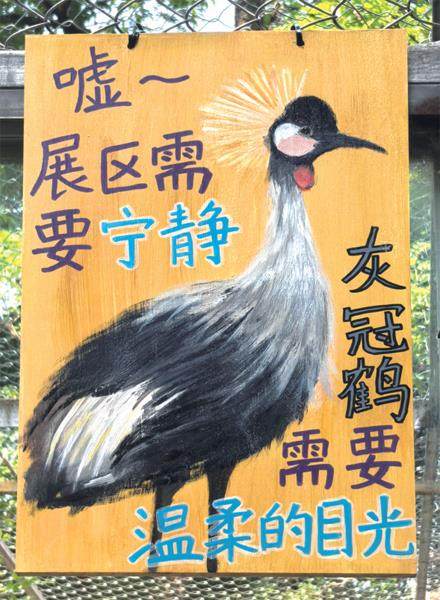 嘘～
展区需
要宁静
灰冠鹤
需要
温柔的目光